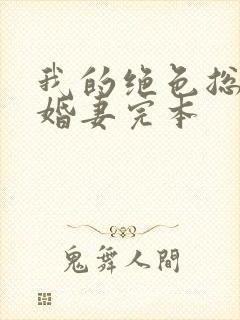 我的绝色总
婚妻完本
鬼舞人間